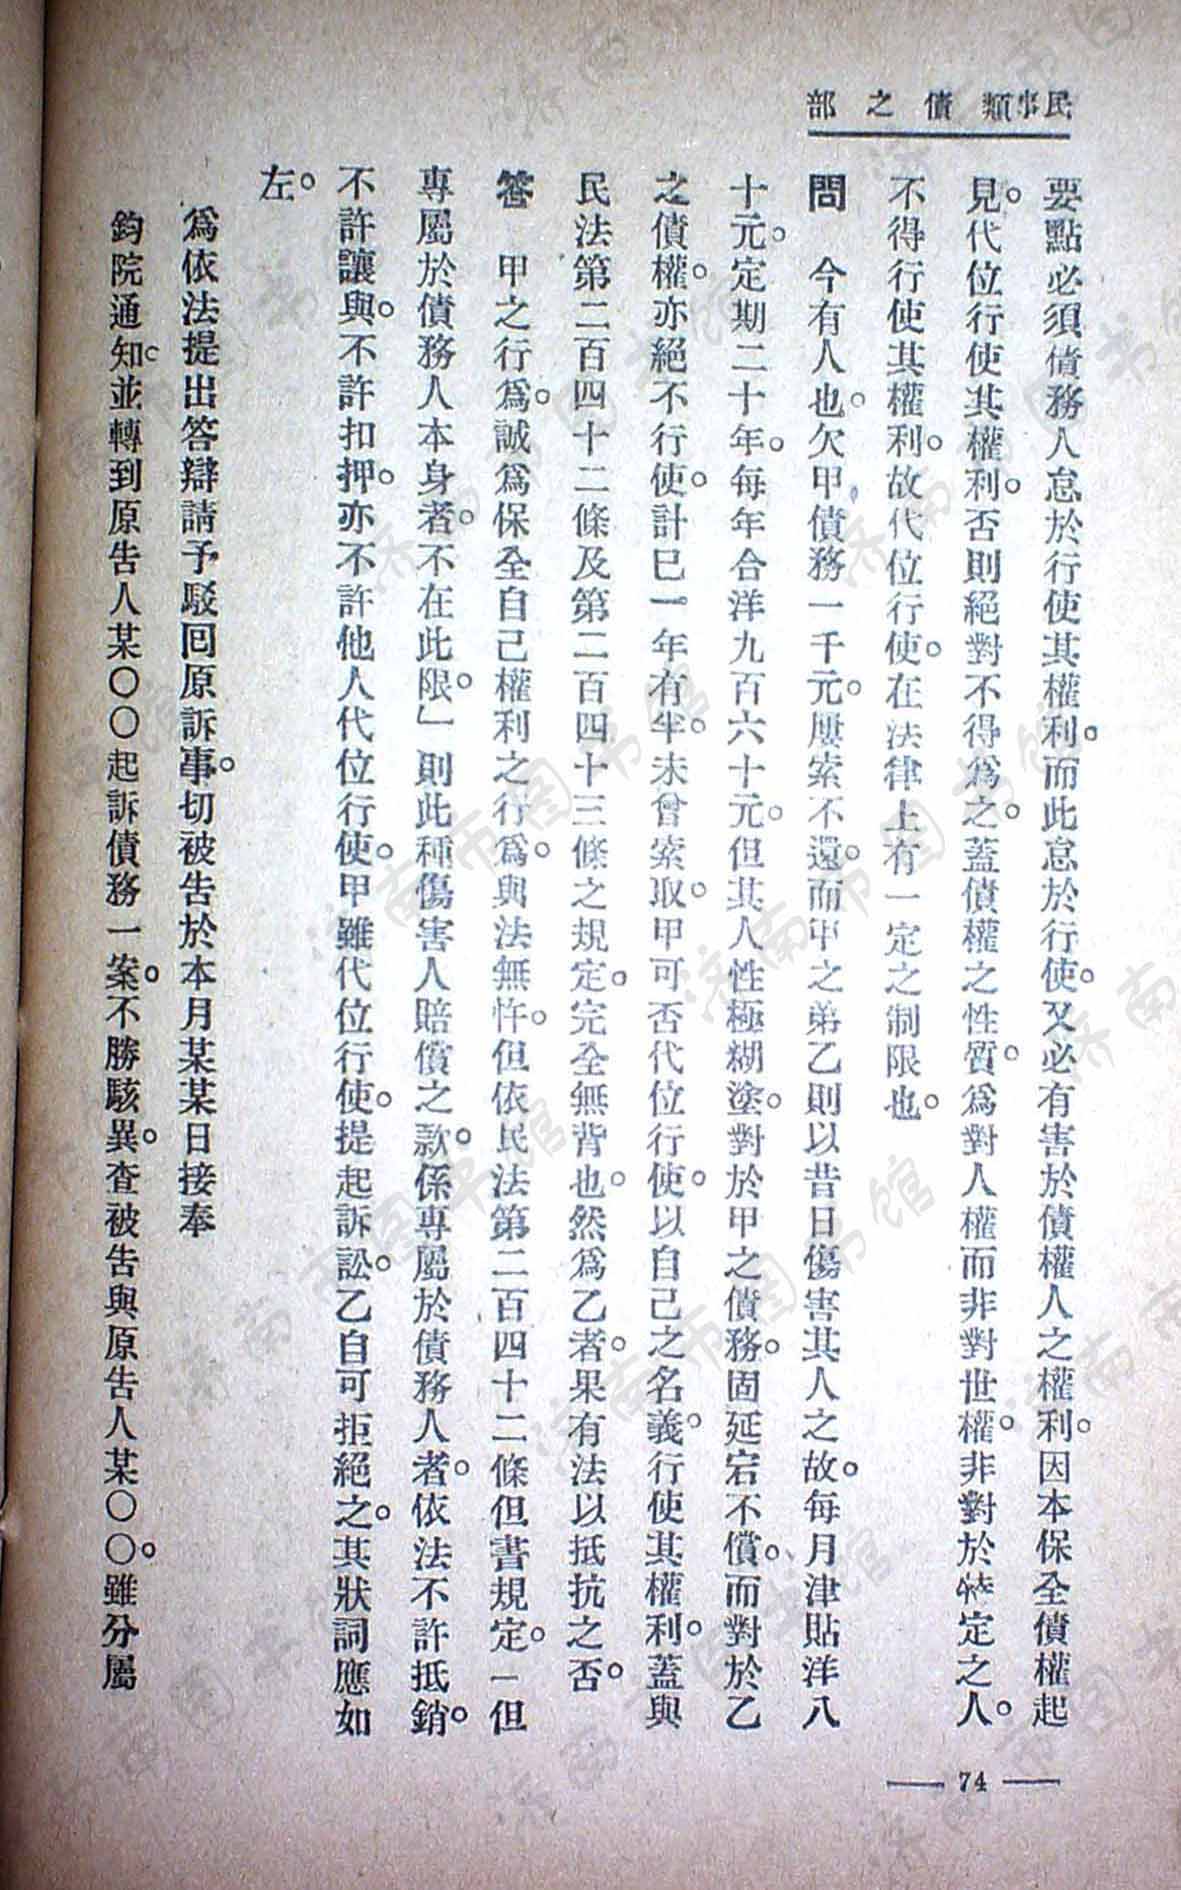 民事類債之部
要點必須債務人怠於行使其權利。而此怠於行使。又必有害於債權人之權利。因本保全債權起
見。代位行使其權利。否則絕對不得爲之。蓋債權之性質。爲對人權而非對世權。非對於特定之人。
不得行使其權利。故代位行使。在法律上有一定之制限也。
問　今有人也。欠甲債務一千元。屢索不還。而甲之弟乙則以昔日傷害其人之故。每月津貼洋八
十元。定期二十年。每年合洋九百六十元。但其人性極糊塗。對於甲之債務。固延宕不償。而對於乙
之債權。亦絕不行使。計已一年有半。未曾索取。甲可否代位行使。以自己之名義。行使其權利。蓋與
民法第二百四十二條及第二百四十三條之規定。完全無背也。然爲乙者。果有法以抵抗之否。
答　甲之行爲。誠爲保全自己權利之行爲。與法無忤。但依民法第二百四十二條但書規定。「但
專屬於債務人本身者。不在此限。」則此種傷害人賠償之款。係專屬於債務人者。依法不許抵銷。
不許讓與。不許扣押。亦不許他人代位行使。甲雖代位行使。提起訴訟。乙自可拒絕之。其狀詞應如
左。
爲依法提出答辯請予駁回原訴事。切被告於本月某某日接奉
鈞院通知。並轉到原告人某〇〇起訴債務一案。不勝駭異。查被告與原告人某〇〇。雖分屬
— 74 —
济南市图书馆